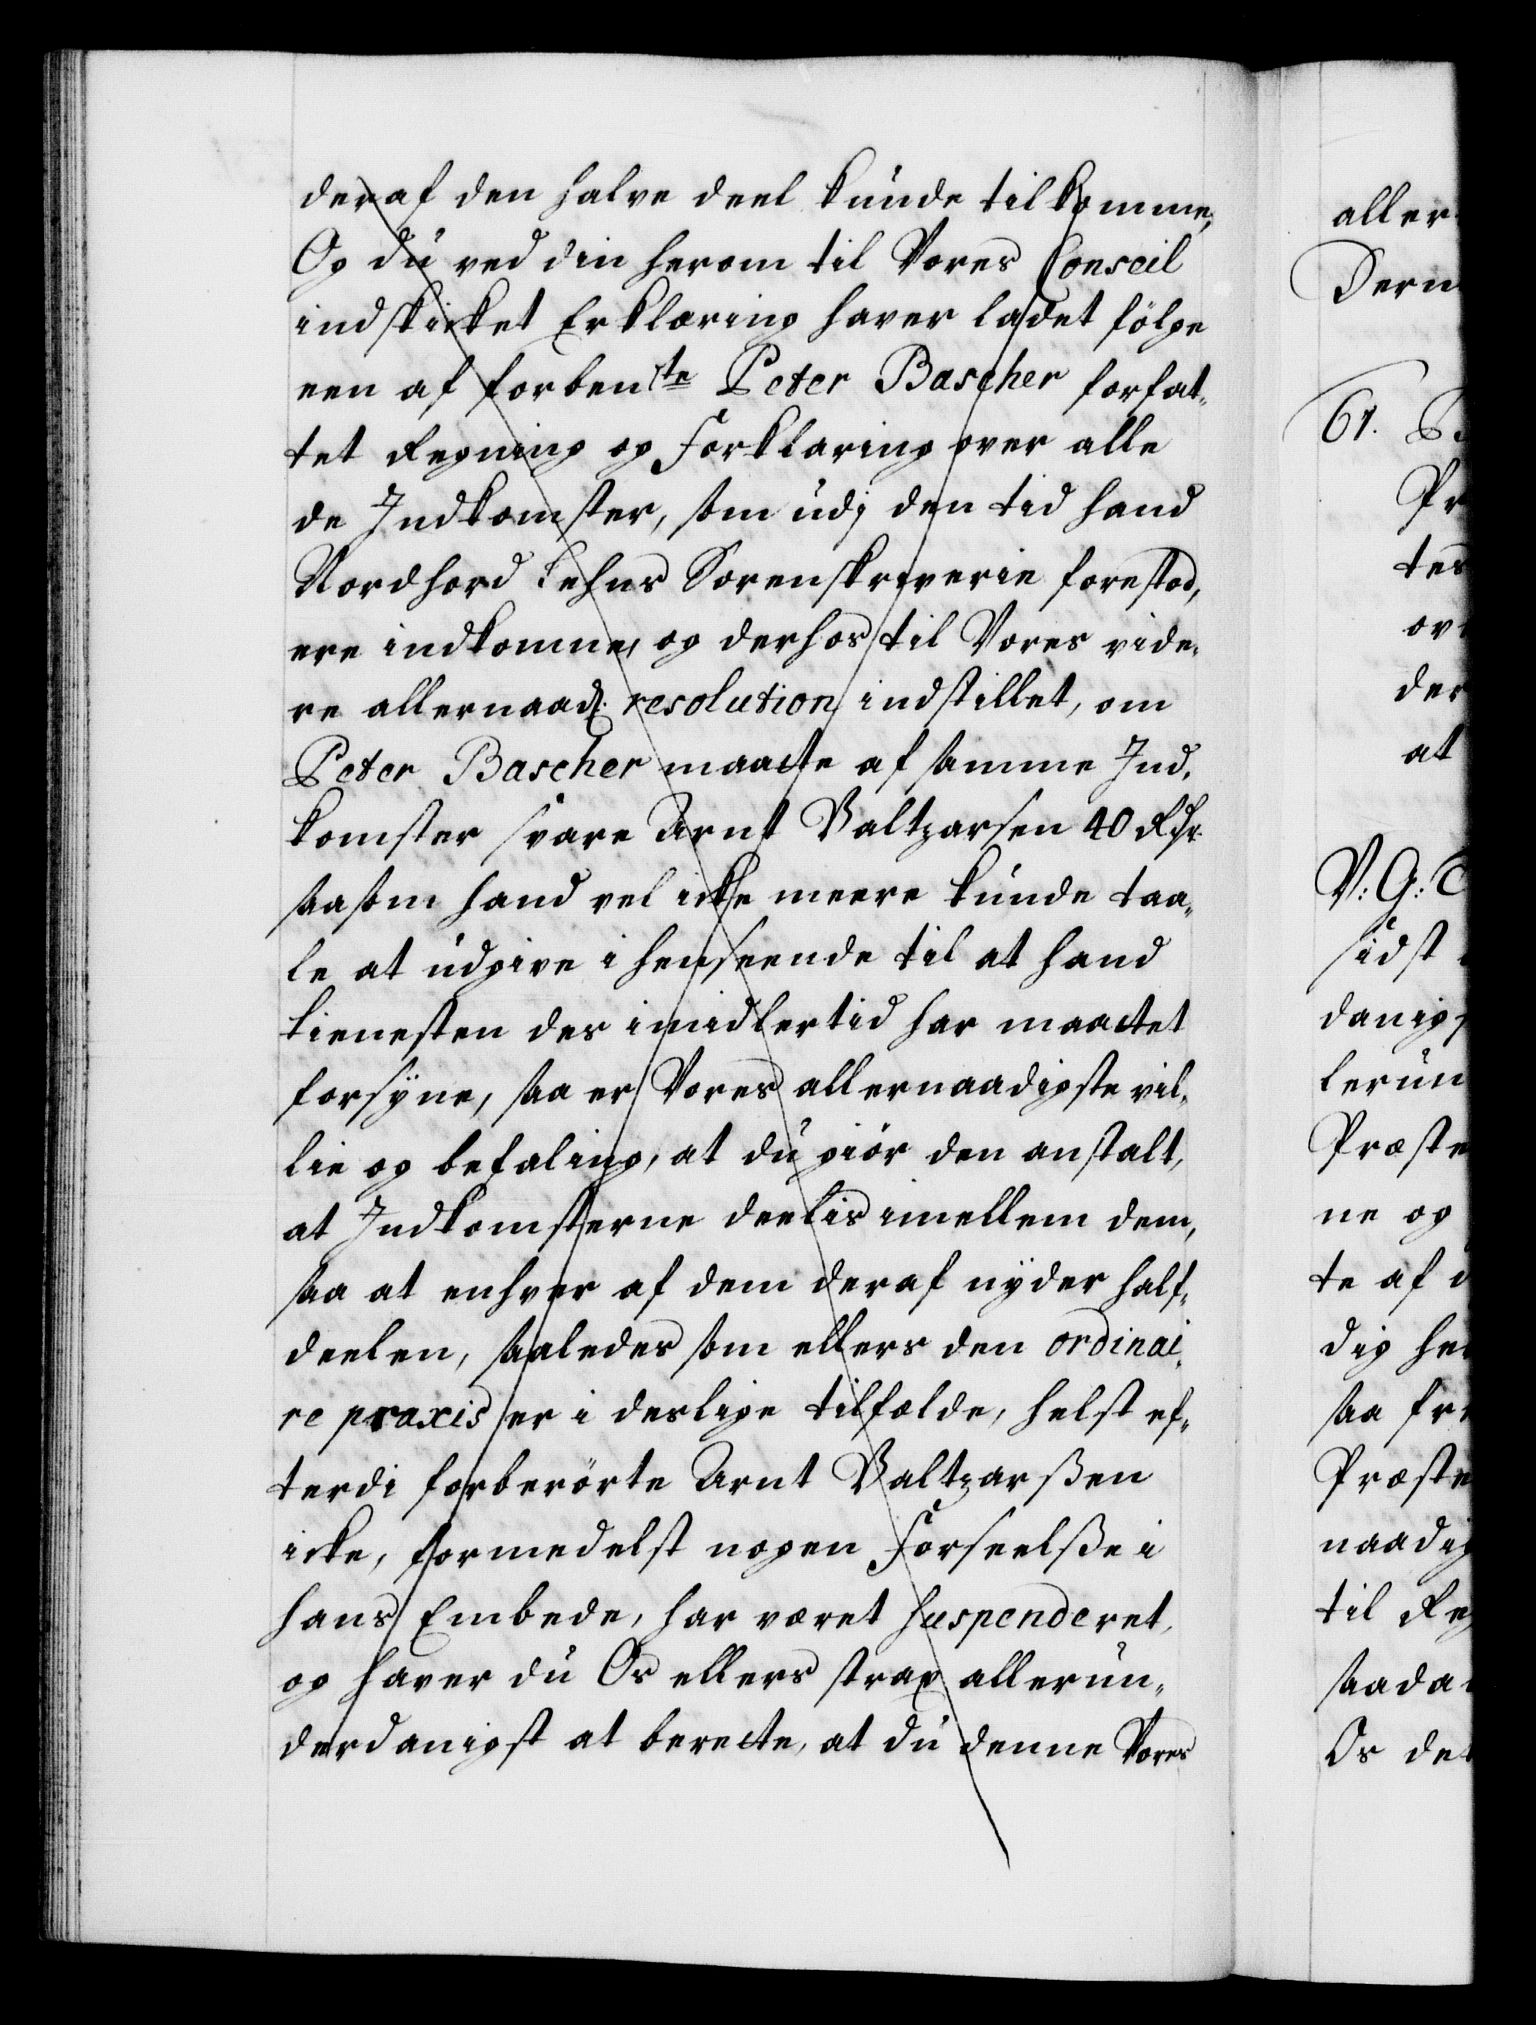 deraf den halve deel kunde tilkomme,
Og du ved din herom til Vores Conseil
indskikket Erklæring haver ladet fölge
een af forbente Peter Bascher forfat„
tet Regning og Forklaring over alle
de Indkomster, som udj den tid hand
Nordhord Lehns Sorenskriverie forestod,
ere indkomne, og derhos til Vores vide„
re allernaad. resolution indstillet, om
Peter Bascher maatte af samme Ind„
komster svare Arnt Baltzarsen 40 Rdr.
saasom hand vel icke meere kunde taa„
le at udgive i henseende til at hand
tienesten des imidlertid har maattet
forsyne, saa er Vores allernaadigste vil„
lie og befaling, at du giör den anstalt,
at Indkomsterne deelis imellem dem,
saa at enhver af dem deraf nyder half„
deelen, saaledes som ellers den ordinai„
re praxis er i deslige tilfælde, helst ef„
terdi forberörte Arnt Baltzarßen
icke, formedelst nogen Forseelße i
hans Embede, har været suspenderet,
og haver du Os ellers strax allerun„
derdanigst at berette, at du denne Vores
aller
Dern
61.
Pr
tes
ov
der
at
V: G: C
sidst
danigs
lerun
Præste
ne og
te af d
dig he
saa fr
Præste
naadig
til Reg
saada
Os det